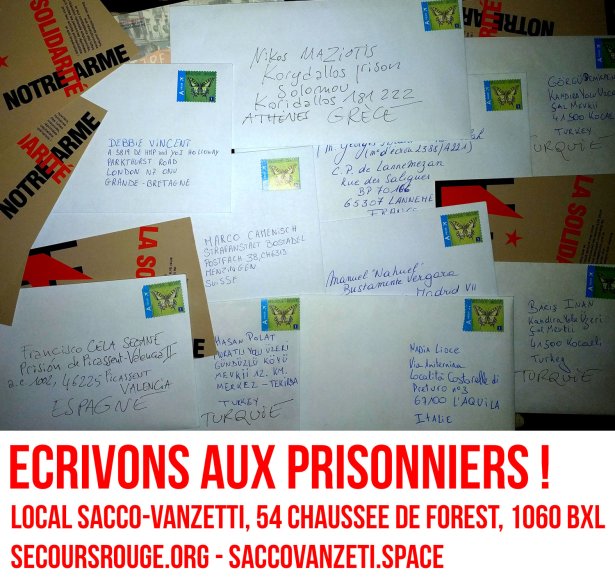 LA SOLIDARITÉ
NOTRE ARME
NOTRE
SOLIDARITÉ
NOTRE ARME
ARITÉ
NOTRE ARME
LA SOLIDA
LA
Nikos MAZIOTIS
Korydallos Prison
Solomou
Koridallos 181 222
ATHENES GRÈCE
DEBBIE VINCENT
A 5819 DE HMP and YOI Holloway
PARKHURST ROAD
LONDON N7 ONU
GRANDE-BRETAGNE
(M. Georges
(n° d'écrou 2388/A221)
C.P. de Lannemezan
Rue des Saligues
BP 70166
65307 LANNEME
FRANCE
Kandira Yolu Uzeri
Sal Mevkii
41500 KOCAEL
TURKEY
TURQUIE
MARCO CAMENISCH
STRAFANSTALT BOSTADEL
POSTFACH 38, CH6313
MENZINGEN
SUISSE
Manuel "Nahuel"
Bustamante Vergara
Madrid VII
Francisco CELA SEOANE
Prision de Picassent-Valencia II
a.c. 1002, 46225 PICASSENT
VALENCIA
ESPAGNE
HASAN POLAT
MURATLI YOLU ÜZERI
GÜNDÜZLÜ KÖYÜ
MEVKII 12. KM.
MERKEZ - TEKIRDA
TURKEY
TURQUIE
NADIA Lioce
Via Amiternina
Località Costarelle di
Preturo n°3
67100 L'AQUILA
Italie
BARIŞ INAN
Kandira Yolu Uzeri
Sal Mevkii
41500 Kocaeli
Turkey
TURQUIE
ECRIVONS AUX PRISONNIERS !
LOCAL SACCO-VANZETTI, 54 CHAUSSEE DE FOREST, 1060 BXL
SECOURSROUGE.ORG - SACCOVANZETI.SPACE